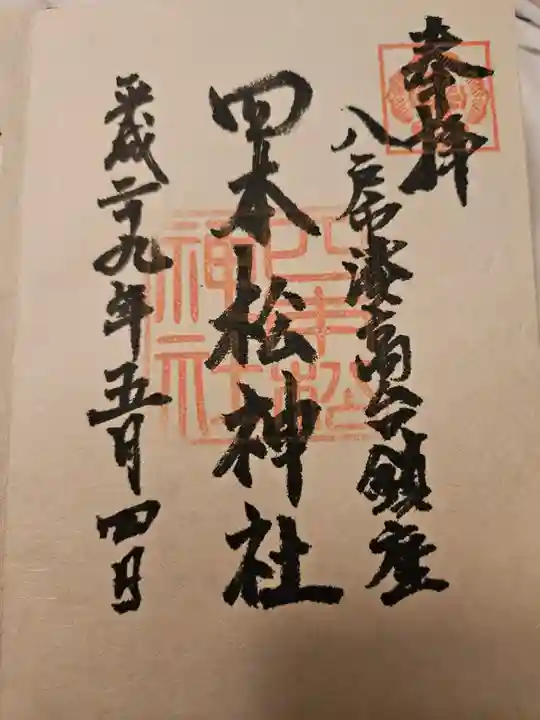 奉拝
八戸市湊高台鎮座
四本松神社
四本松神社
平成二十九年五月四日